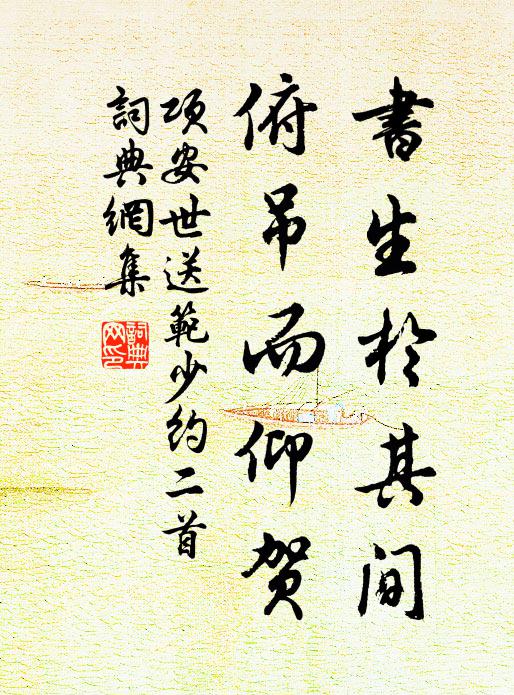 書生於其間
俯吊而仰贺
项安世送範少约二首
詞典網集
詞典網印